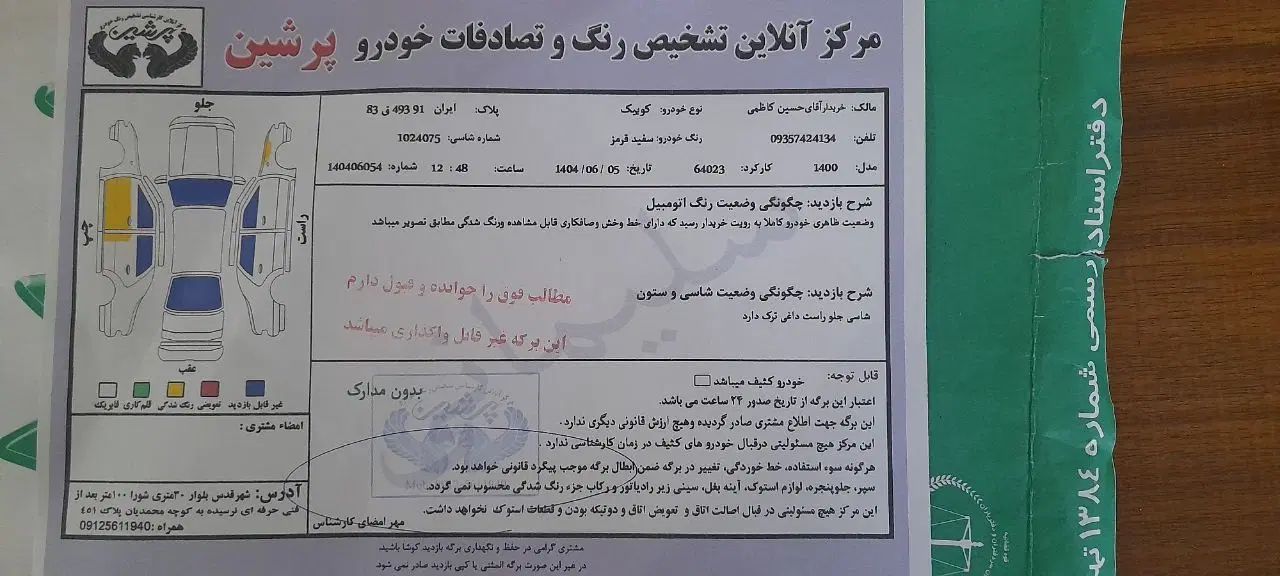 مرکز آنلاین کارشناسی تشخیص رنگ خودرو
پرشین
مرکز آنلاین تشخیص رنگ و تصادفات خودرو پرشین
مالک: خریدار آقای حسین کاظمی نوع خودرو: کوییک پلاک: ایران 91 493 ق 83
تلفن: 09357424134 رنگ خودرو: سفید قرمز شماره شاسی: 1024075
مدل: 1400 کارکرد: 64023 تاریخ: 05 / 06 / 1404 ساعت: 48 : 12 شماره: 140406054
شرح بازدید: چگونگی وضعیت رنگ اتومبیل
وضعیت ظاهری خودرو کاملا به رویت خریدار رسید که دارای خط وخش وصافکاری قابل مشاهده ورنگ شدگی مطابق تصویر میباشد
مطالب فوق را خوانده و قبول دارم
شرح بازدید: چگونگی وضعیت شاسی و ستون
شاسی جلو راست داغی ترک دارد
این برگه غیر قابل واگذاری میباشد
جلو
راست
چپ
عقب
غیر قابل بازدید تعویضی رنگ شدگی قلم‌کاری فابریک
امضاء مشتری :
آدرس: شهرقدس بلوار ۳۰متری شورا ۱۰۰متر بعد از
فنی حرفه ای نرسیده به کوچه محمدیان پلاک ۴۵۱
همراه: 09125611940
قابل توجه: خودرو کثیف میباشد
بدون مدارک
اعتبار این برگه از تاریخ صدور ۲۴ ساعت می باشد.
این برگه جهت اطلاع مشتری صادر گردیده وهیچ ارزش قانونی دیگری ندارد .
این مرکز هیچ مسئولیتی درقبال خودرو های کثیف در زمان کارشناسی ندارد .
هرگونه سوء استفاده، خط خوردگی، تغییر در برگه ضمن ابطال برگه موجب پیگرد قانونی خواهد بود.
سپر، جلوپنجره، لوازم استوک، آینه بغل، سینی زیر رادیاتور و رکاب جزء رنگ شدگی محسوب نمی گردد.
این مرکز هیچ مسئولیتی در قبال اصالت اتاق و تعویض اتاق و دوتیکه بودن و قطعات استوک نخواهد داشت.
مهر امضای کارشناس
پرشین
مشتری گرامی در حفظ و نگهداری برگه بازدید کوشا باشید.
در غیر این صورت برگه المثنی یا کپی بازدید صادر نمی شود.
دفتر اسناد رسمی شماره ۱۳۸۴